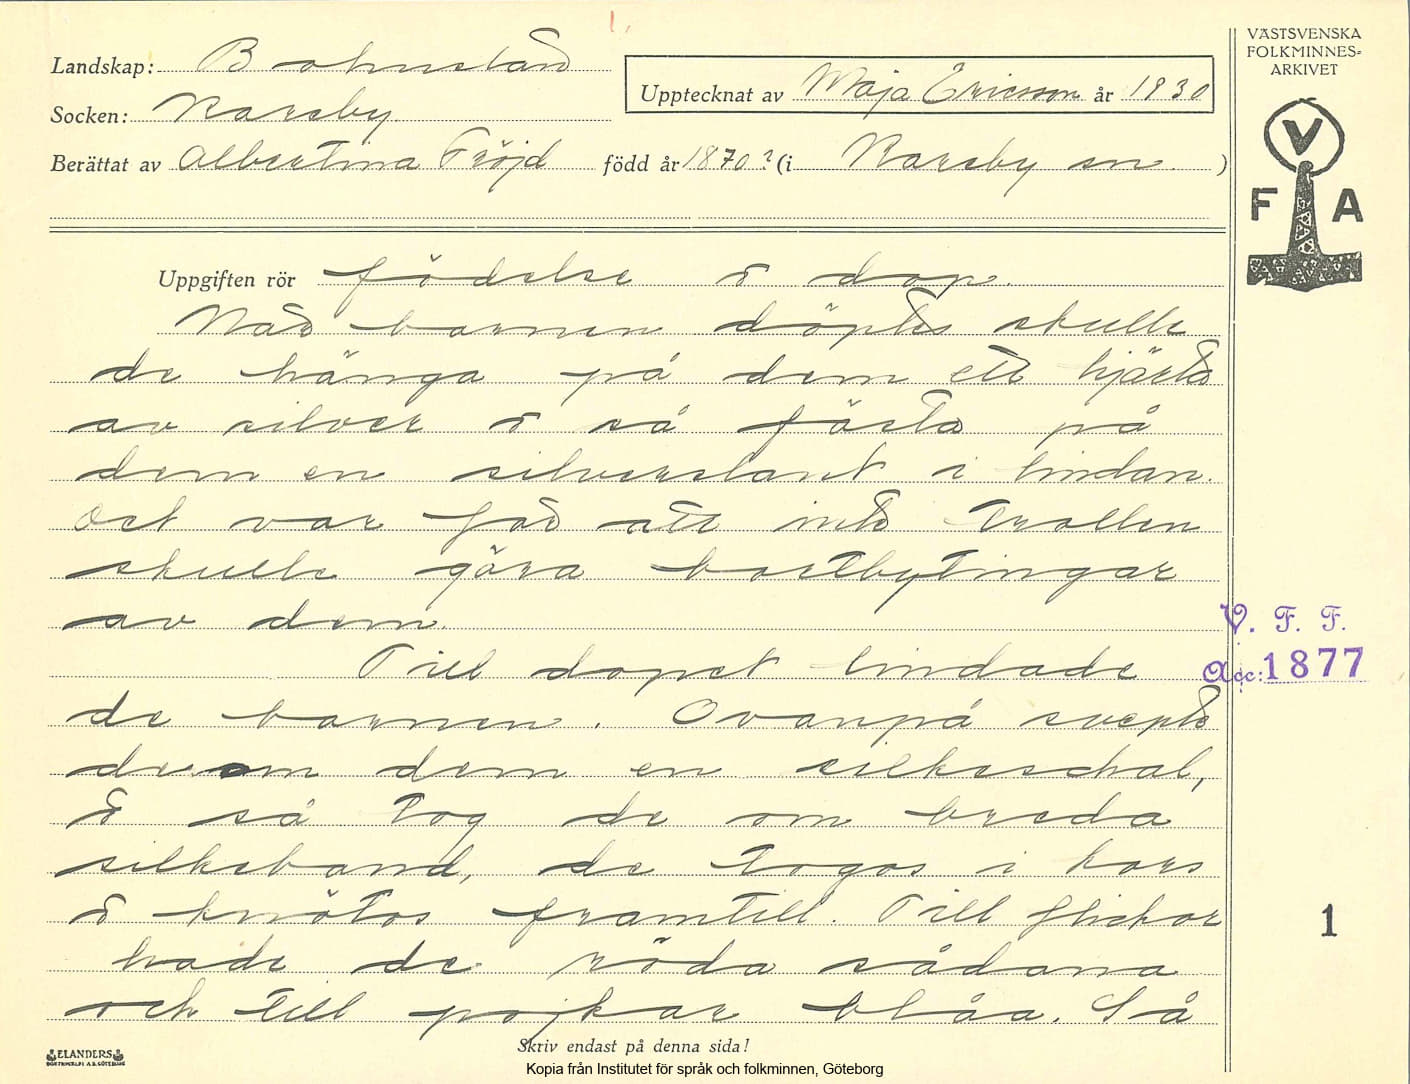 VÄSTSVENSKA
FOLKMINNES-
ARKIVET
V
F A
Landskap: Bohuslän
Upptecknat av Maja Ericsson år 1930
Socken: Kareby
Berättat av Albertina Fröjd född år 1870? (i Kareby sn. )
Uppgiften rör födelse o dop.
När barnen döptes skulle
de hänga på dem ett hjärta
av silver o så fästa på
dem en silverslant i lindan.
Det var för att inte trollen
skulle göra bortbytingar
av dem.
Till dopet lindade
de barnen. Ovanpå svepte
de om dem en silkeschal,
o så tog de om breda
silkeband, de togos i kors
o knötos framtill. Till flickor
hade de röda sådana
och till pojkar blåa. Så
V. F. F.
Acc: 1877
1
Skriv endast på denna sida!
ELANDERS
Kopia från Institutet för språk och folkminnen, Göteborg